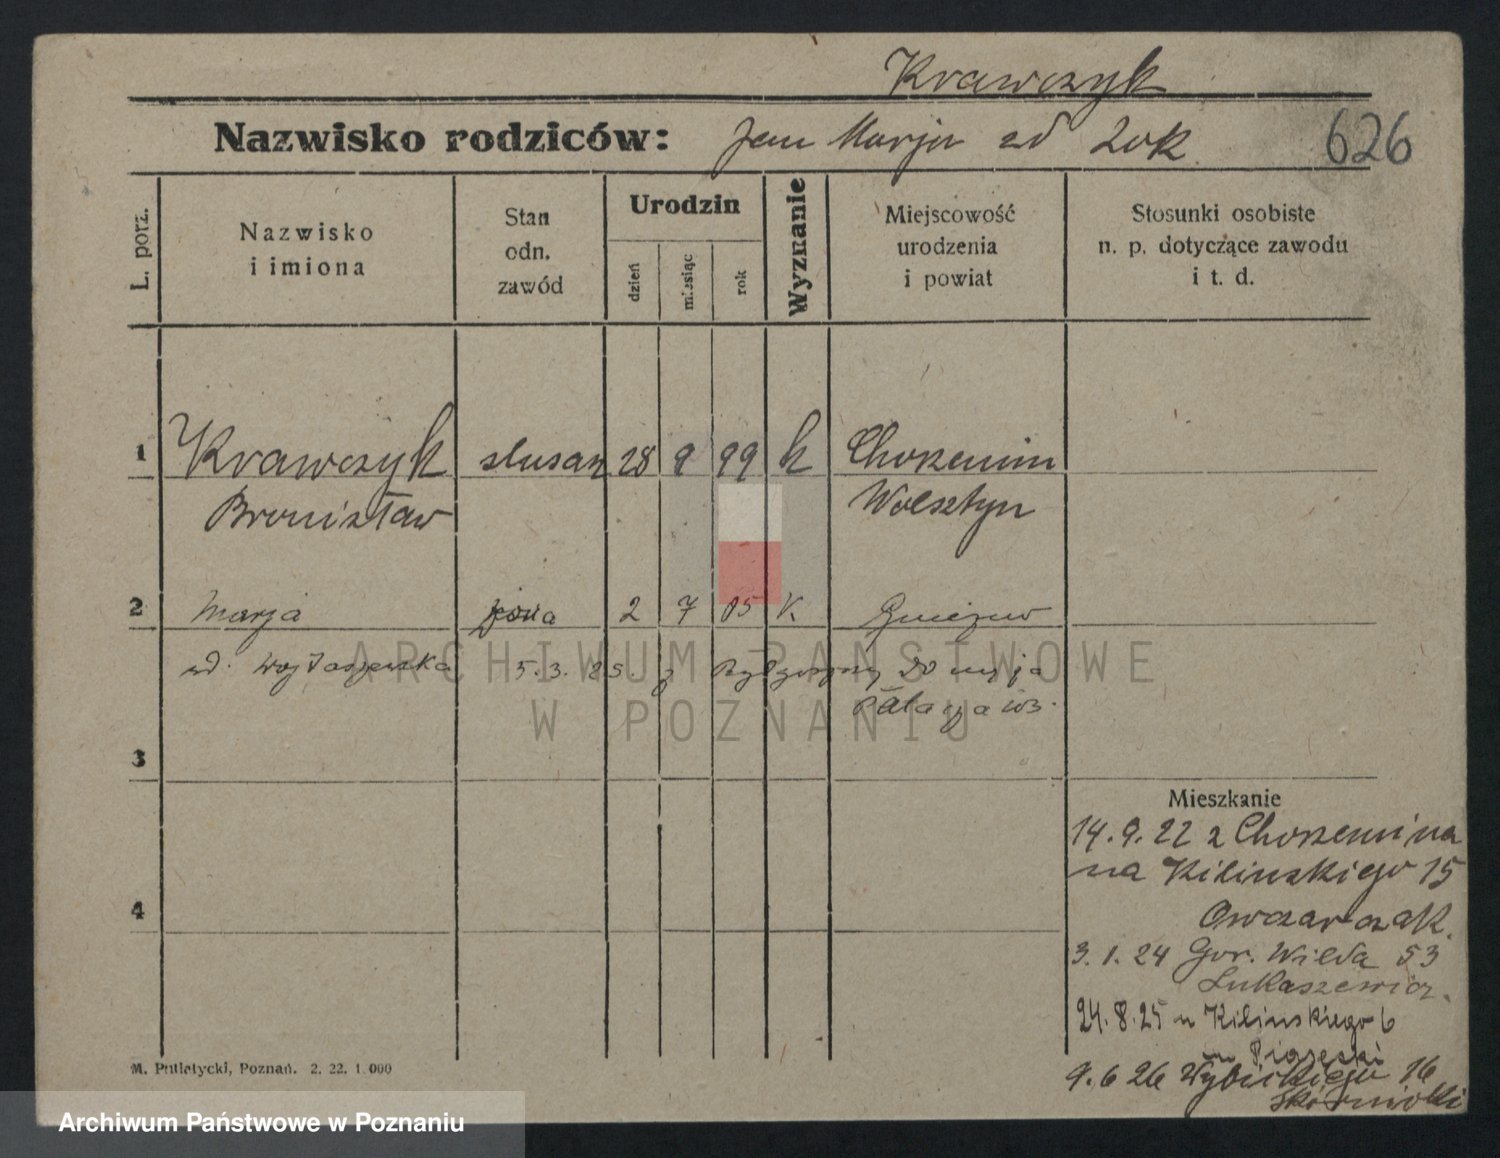 Krawczyk
Nazwisko rodziców: Jan Marja zd Zok 626
L. porz.
Nazwisko
i imiona
Stan
odn.
zawód
Urodzin
dzień
miesiąc
rok
Wyznanie
Miejscowość
urodzenia
i powiat
Stosunki osobiste
n. p. dotyczące zawodu
i t. d.
1 Krawczyk slusarz 28 9 99 k Chorzemin
Bronisław Wolsztyn
2 Marja żona 2 7 05 k.
zd. Wojtaszewska 5. 3. 25. z Bydgoszczy do męża
3
4
Mieszkanie
14. 9. 22 z Chorzemina
na Kilinskiego 15
Owczarczak.
3. 1. 24 Gor. Wilda 53
Lukaszewicz.
24. 8. 25 Kilinskiego 6
Piasecki
9. 6 26 Wybickiego 16
M. Putiatycki, Poznań. 2. 22. 1 000
ARCHIWUM PAŃSTWOWE
W POZNANIU
Archiwum Państwowe w Poznaniu